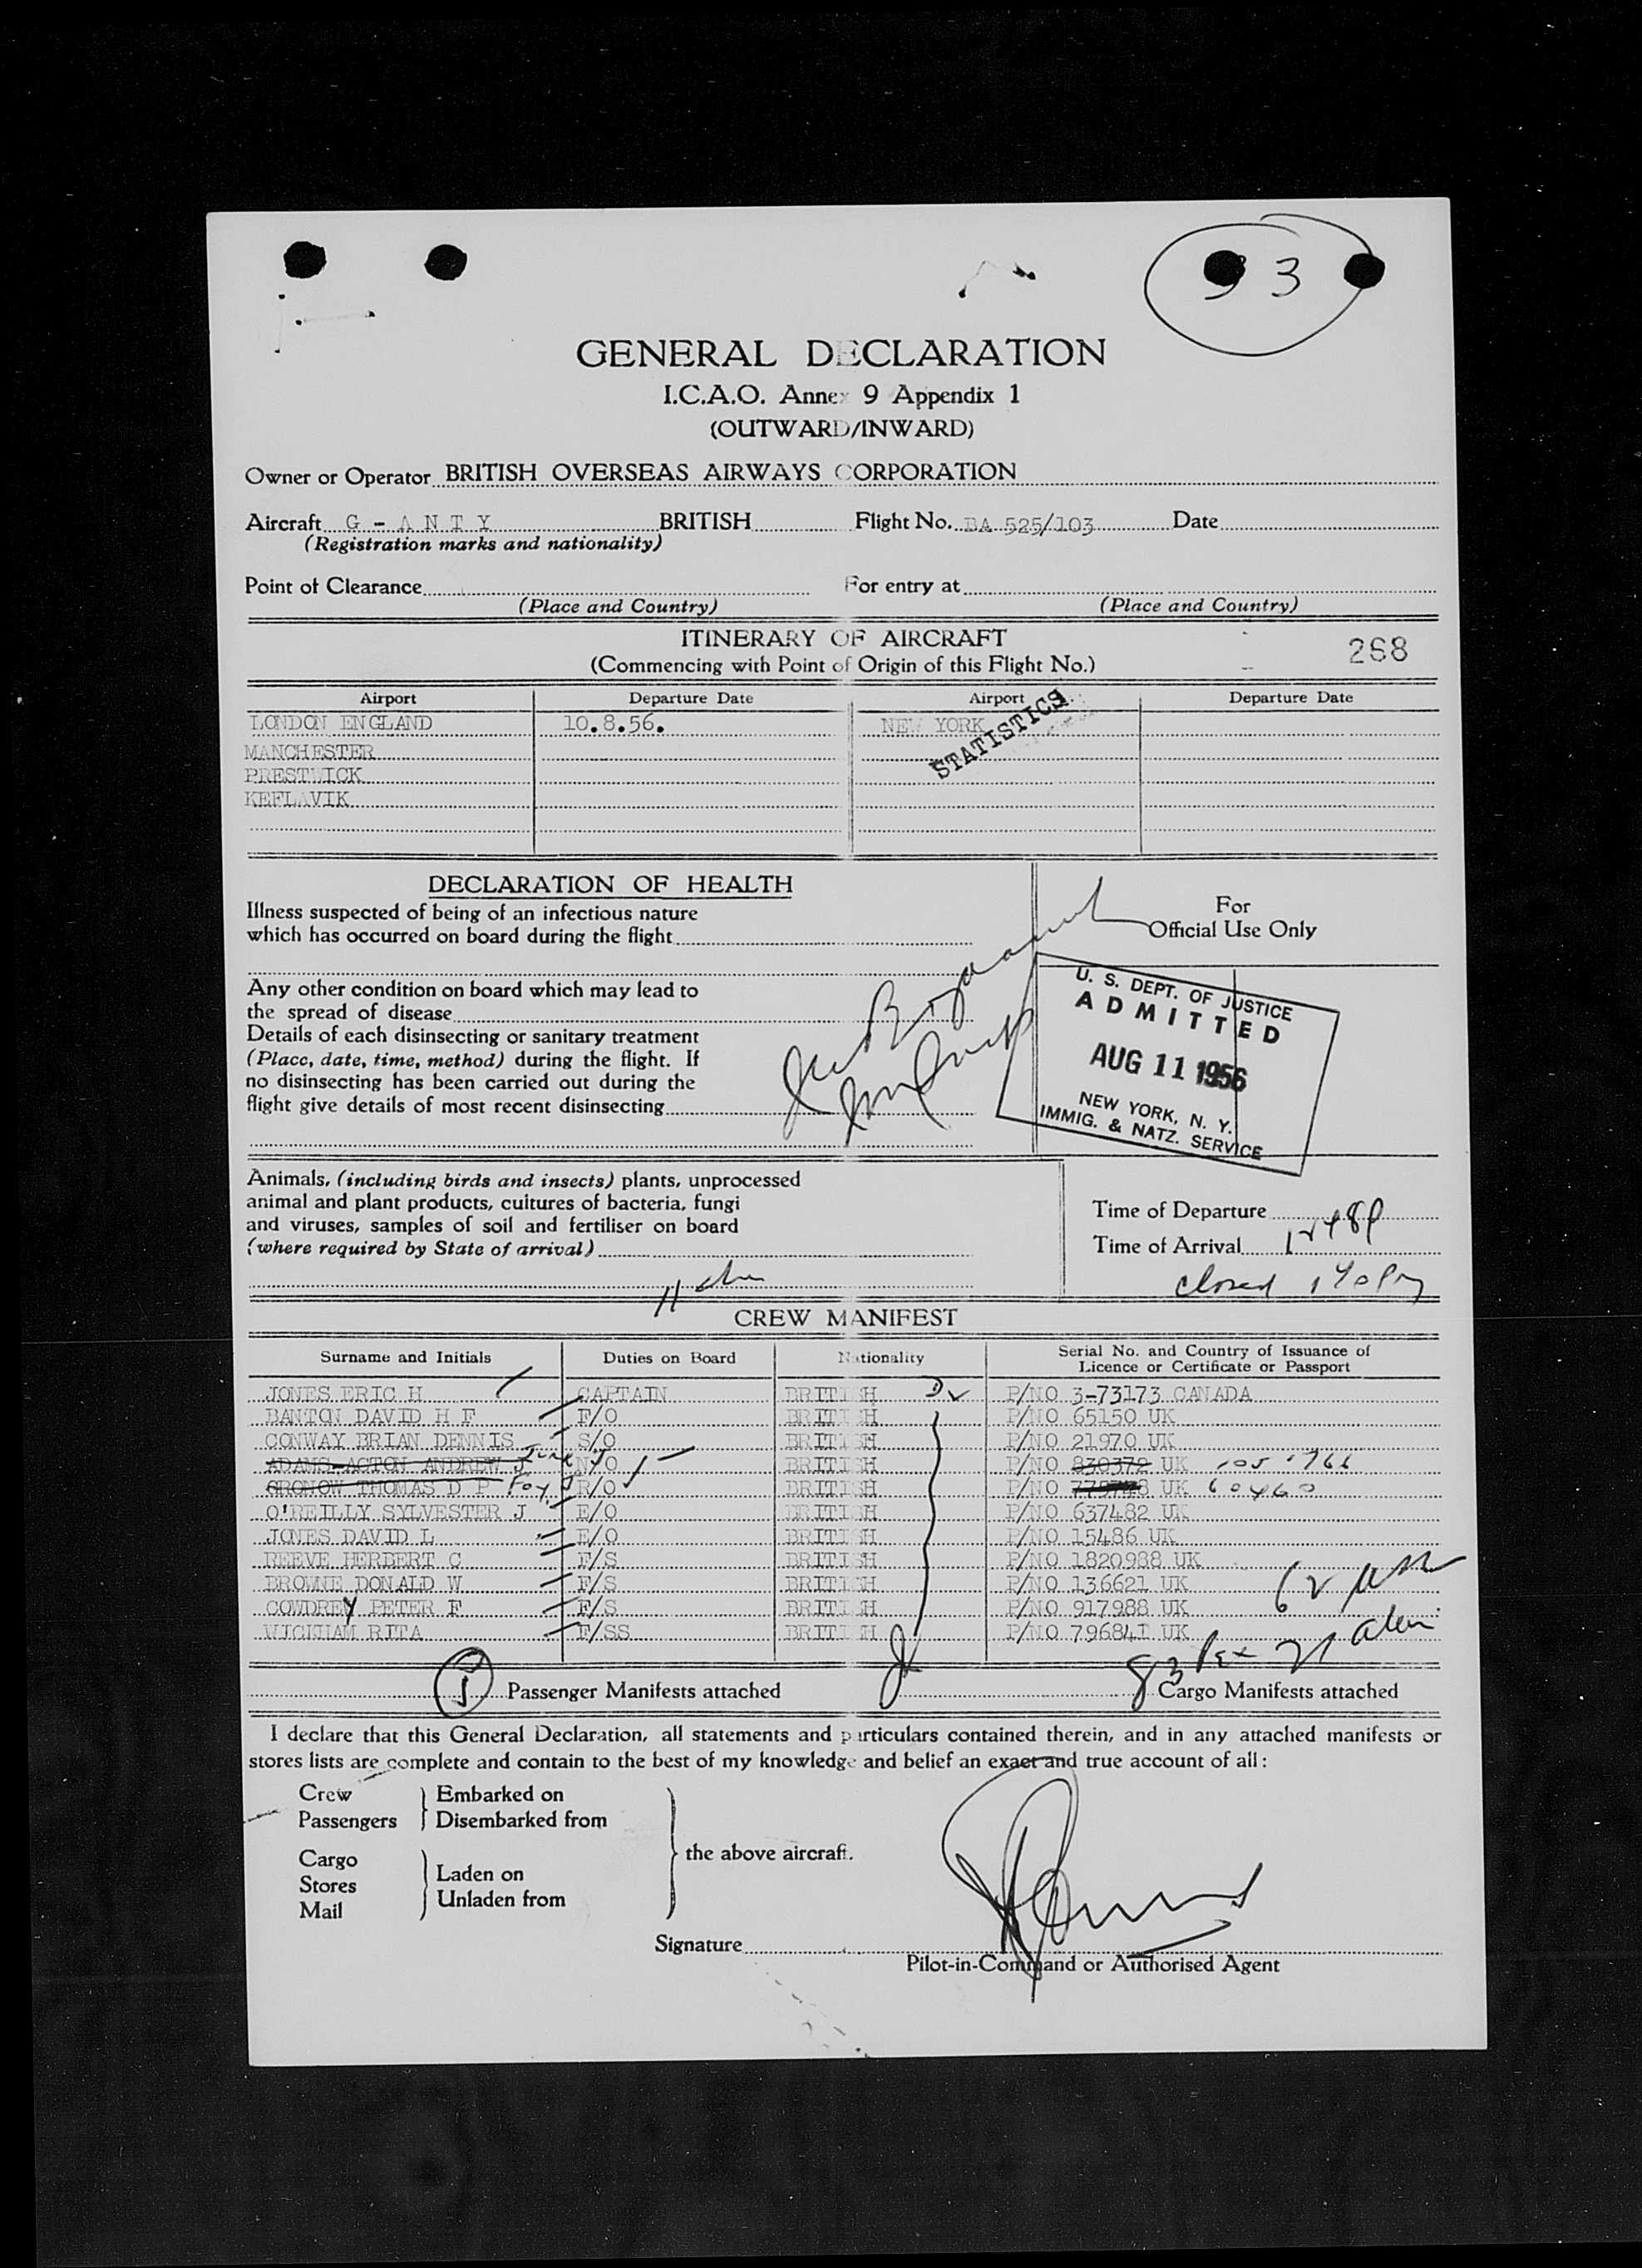 93
GENERAL DECLARATION
I.C.A.O. Annex 9 Appendix 1
(OUTWARD/INWARD)
Owner or Operator BRITISH OVERSEAS AIRWAYS CORPORATION
Aircraft G - A N T Y BRITISH Flight No. BA 525/103 Date
(Registration marks and nationality)
Point of Clearance For entry at
(Place and Country) (Place and Country)
ITINERARY OF AIRCRAFT
(Commencing with Point of Origin of this Flight No.) 268
Airport Departure Date Airport Departure Date
LONDON ENGLAND 10.8.56. NEW YORK
STATISTICS
MANCHESTER
PRESTWICK
KEFLAVIK
DECLARATION OF HEALTH
Illness suspected of being of an infectious nature
which has occurred on board during the flight
Any other condition on board which may lead to
the spread of disease
Details of each disinsecting or sanitary treatment
(Place, date, time, method) during the flight. If
no disinsecting has been carried out during the
flight give details of most recent disinsecting
For
Official Use Only
U. S. DEPT. OF JUSTICE
ADMITTED
AUG 11 1956
NEW YORK, N. Y.
IMMIG. & NATZ. SERVICE
Animals, (including birds and insects) plants, unprocessed
animal and plant products, cultures of bacteria, fungi
and viruses, samples of soil and fertiliser on board
(where required by State of arrival)
Time of Departure
Time of Arrival 1248P
closed 140 Pm
11
CREW MANIFEST
Surname and Initials Duties on Board Nationality Serial No. and Country of Issuance of
Licence or Certificate or Passport
JONES ERIC H CAPTAIN BRITISH P/NO 3-73173 CANADA
BANTON DAVID H F F/O BRITISH P/NO 65150 UK
CONWAY BRIAN DENNIS S/O BRITISH P/NO 21970 UK
ADAMS-ACTON ANDREW J N/O BRITISH P/NO 830372 UK
GRONOW THOMAS D P Foy, J R/O BRITISH P/NO UK 60460
O'REILLY SYLVESTER J E/O BRITISH P/NO 637482 UK
JONES DAVID L E/O BRITISH P/NO 15486 UK
REEVE HERBERT C F/S BRITISH P/NO 1820988 UK
BROWNE DONALD W F/S BRITISH P/NO 136621 UK
COWDREY PETER F F/S BRITISH P/NO 917988 UK
WICKHAM RITA F/SS BRITISH P/NO 796841 UK
62 21 alien
83 Pax
5 Passenger Manifests attached Cargo Manifests attached
I declare that this General Declaration, all statements and particulars contained therein, and in any attached manifests or
stores lists are complete and contain to the best of my knowledge and belief an exact and true account of all:
Crew Embarked on
Passengers Disembarked from
the above aircraft.
Cargo
Stores Laden on
Mail Unladen from
Signature
Pilot-in-Command or Authorised Agent